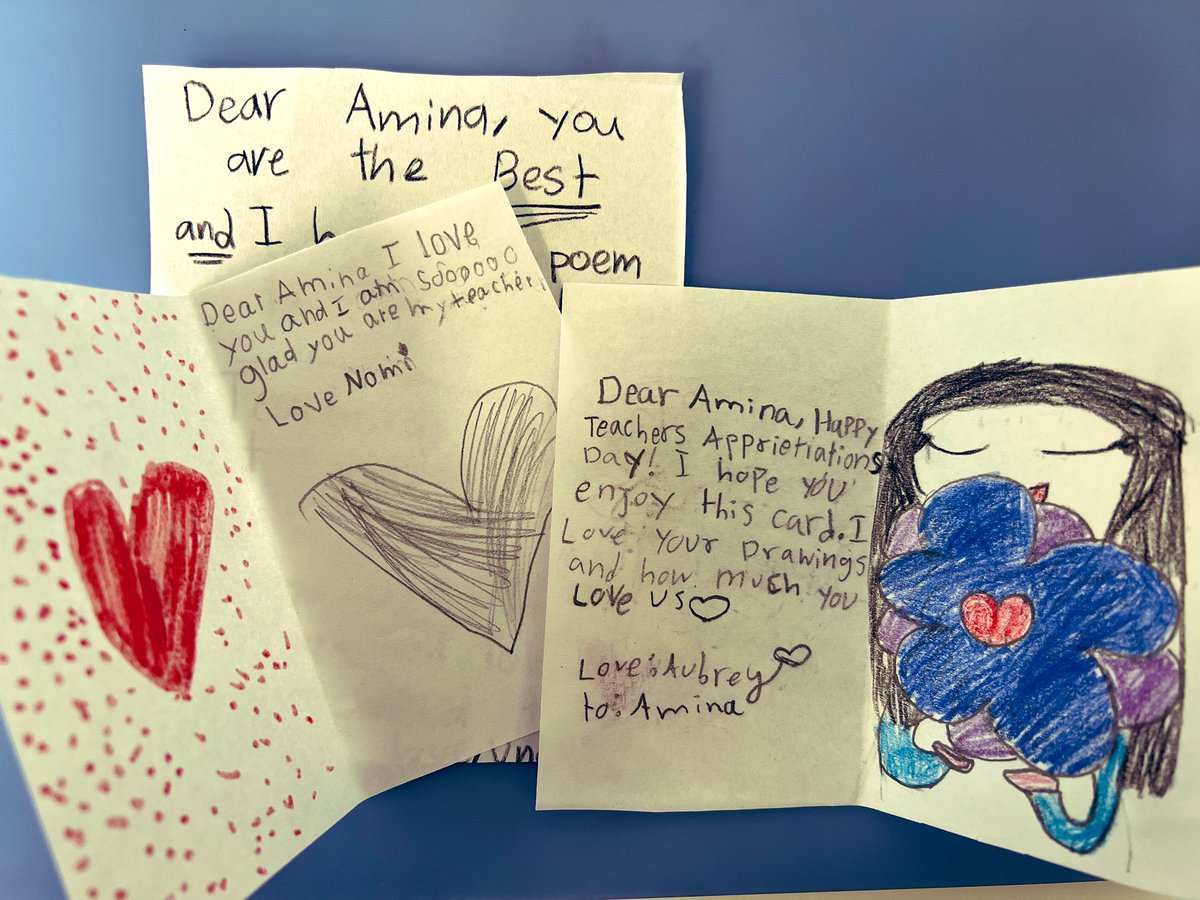 Dear Amina, you
are the Best
and I
poem
Dear Amina I love
you and I am Soooooo
glad you are my teacher.
Love Nomi
Dear Amina, Happy
Teachers Apprietiations
Day! I hope you
enjoy this card. I
Love Your Drawings
and how much you
Love us
Love: Aubrey
to: Amina